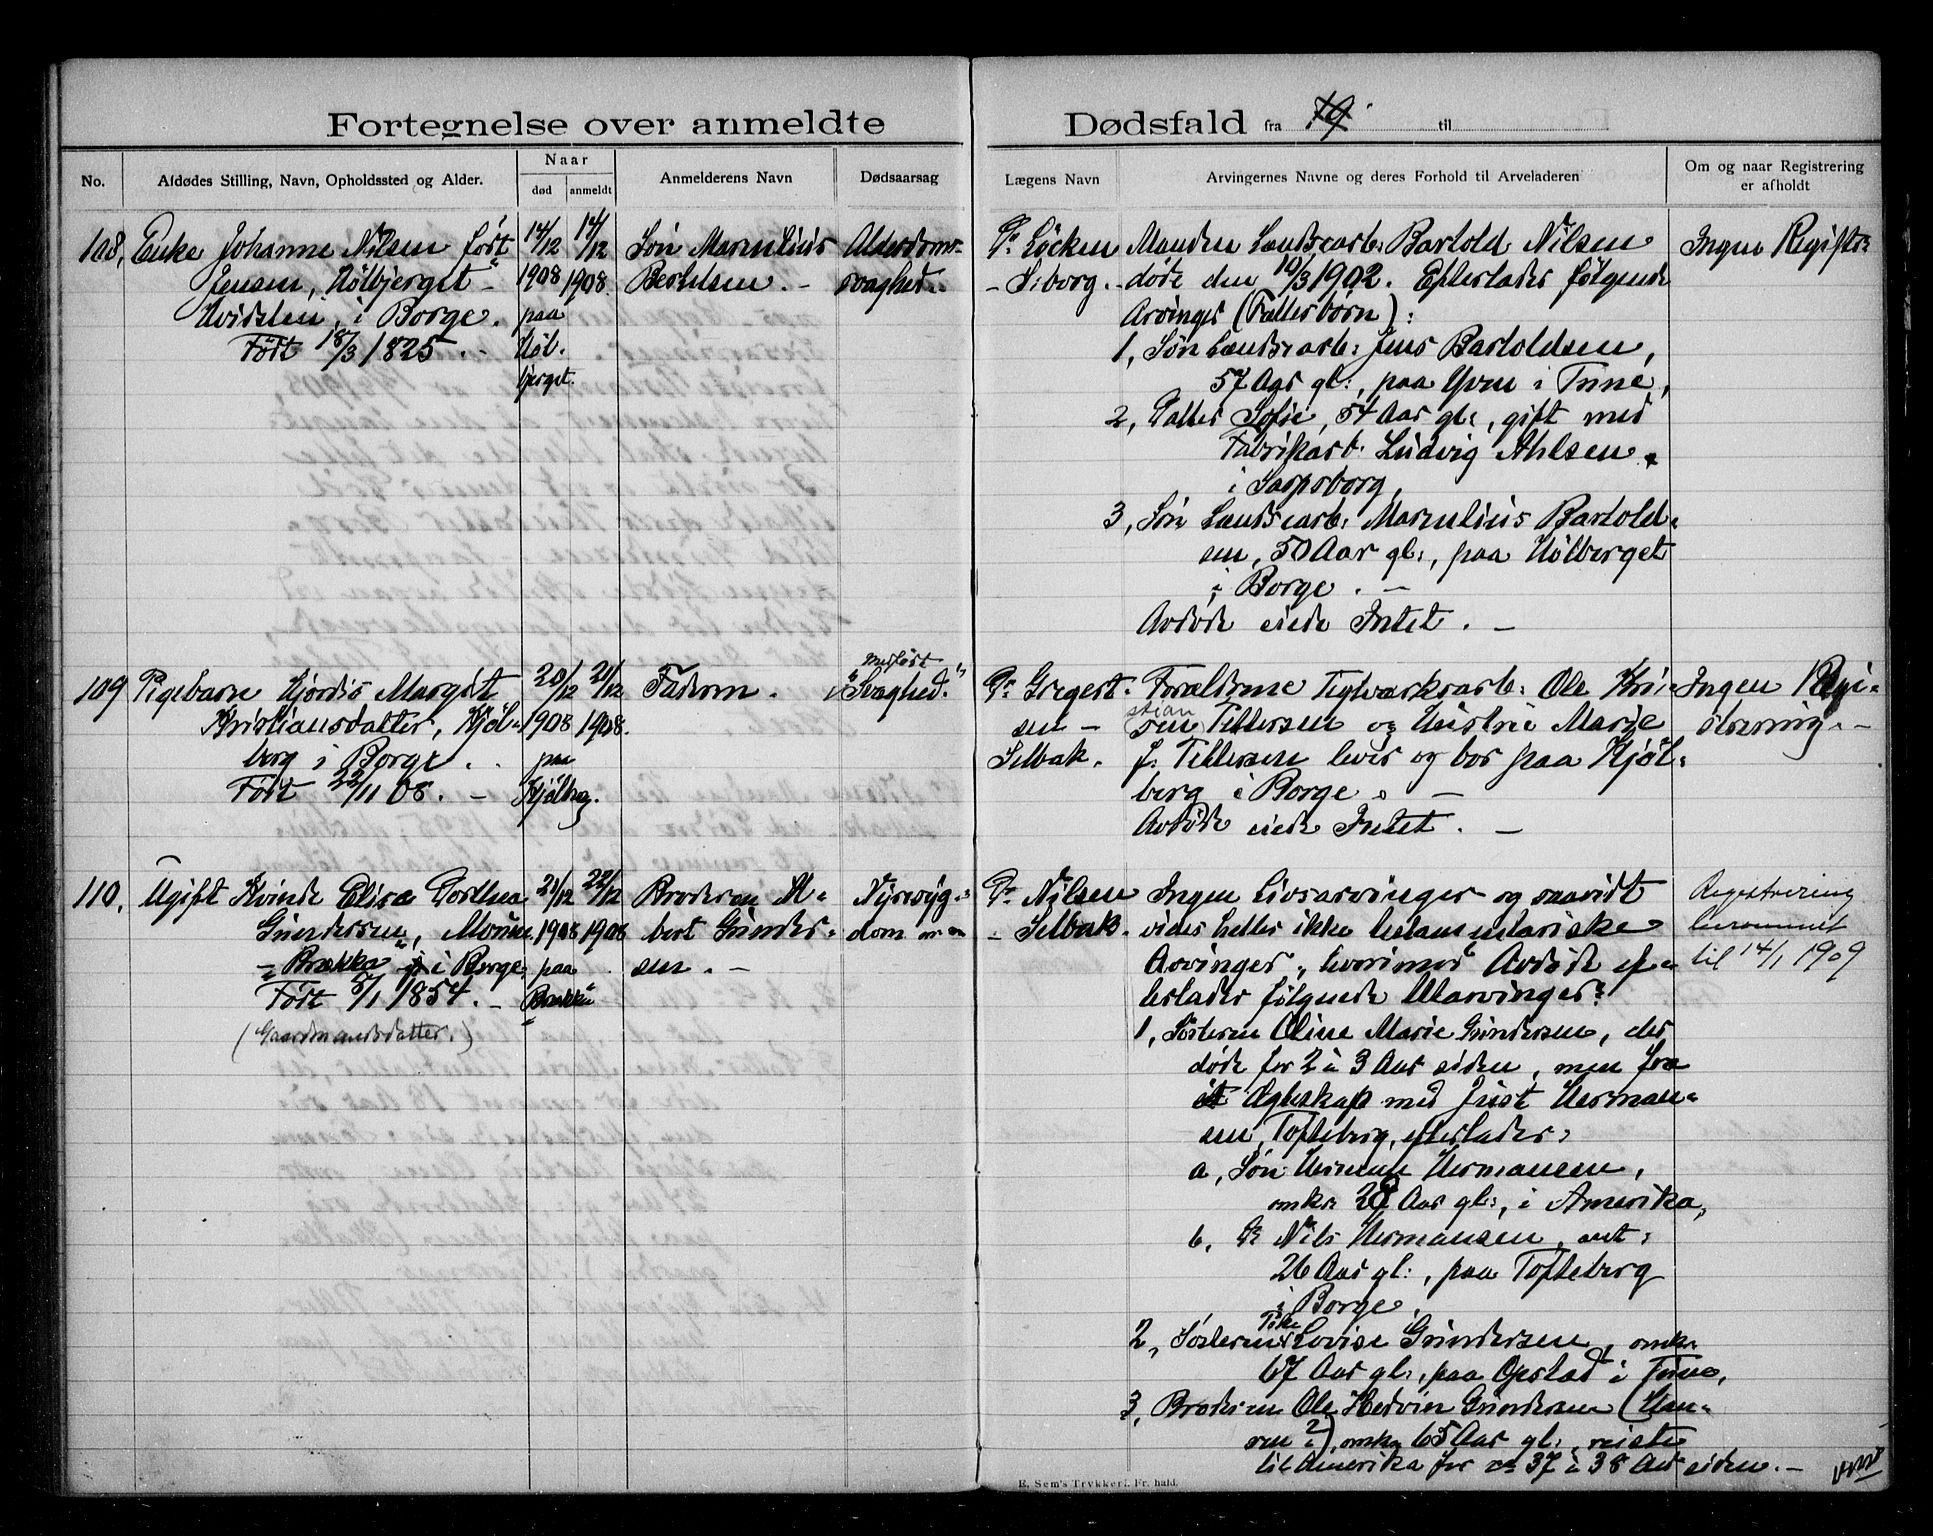 Fortegnelse over anmeldte Dødsfald fra 19 til
No.
Afdødes Stilling, Navn, Opholdssted og Alder.
Naar
død
anmeldt
Anmelderens Navn
Dødsaarsag
Lægens Navn
Arvingernes Navne og deres Forhold til Arveladeren
Om og naar Registrering
er afholdt
108, Enke Johanne Nilsen født
Jensen,
i Borge.
Født 18/3 1825. -
14/12
1908
paa
14/12
1908.
Søn Marmilius
Bertelsen. -
Alderdoms-
svaghed. -
Dr Løcken
- S:borg. -
Manden Landsearb: Bartold Nilsen
døde den 10/3 1902. Efterlader følgende
Arvinger (Fællesbørn):
1, Søn Landsearb: Jens Bartoldsen,
57 Aar gl:, paa Yven i Tune,
2, Datter Sofie, 54 Aar gl:, gift med
Fabrikarb: Ludvig Ahlsen
i Sarpsborg,
3, Søn Landsearb: Marmilius Bartold-
sen, 50 Aar gl:, paa Hølberget
i Borge. -
Avdøde eiede Intet. -
Ingen Regist:
109 Pigebarn Hjørdis Margit
Kristiansdatter, Kjøl-
berg i Borge.
Født 22/11 08. -
20/12
1908
paa
Kjølberg.
21/12
1908.
Faderen.
Medfødt
Svaghed."
Dr Gregert-
sen -
Selbak.
Forældrene Teglværksarb: Ole Kri-
stian
sen Pettersen og Hustru Marie
f: Pettersen lever og bor paa Kjøl-
berg i Borge. -
Avdøde eiede Intet. -
Ingen Regi-
strering. -
110, Ugift Kvinde Elise Dorthea
Gundersen, Moum
- Brække i Borge
Født 5/1 1854. -
(Gaardmandsdatter.)
21/12
1908
paa
Brække
22/12
1908
Broderen Al-
bert Gunder-
sen. -
Nyresyg-
dom
Dr Nilsen
- Selbak. -
Ingen Livsarvinger og saavidt
vides heller ikke testamentariske
Arvinger, hvorimod Avdøde ef-
terlader følgende Utarvinger:
1, Søsteren Oline Marie Gundersen, der
døde for 2 à 3 Aar siden, men fra
Ægteskap med Just Herman-
sen, Tofteberg, efterlader:
a, Søn Herman Hermansen,
omkr: 28 Aar gl:, i Amerika,
b, Nils Hermansen, ant:
26 Aar gl:, paa Tofteberg
i Borge.
2, Søsteren Lovise Gundersen, omkr
67 Aar gl:, paa Opstad i Tune,
3, Broderen Ole Hedvin Gundersen (Han-
sen ?), omkr 65 Aar gl:, reiste
til Amerika for ca 37 à 38 Aar siden. -
Registrering
berammet
til 14/1 1909
vend
E. Sem's Trykkeri. Fr. hald.